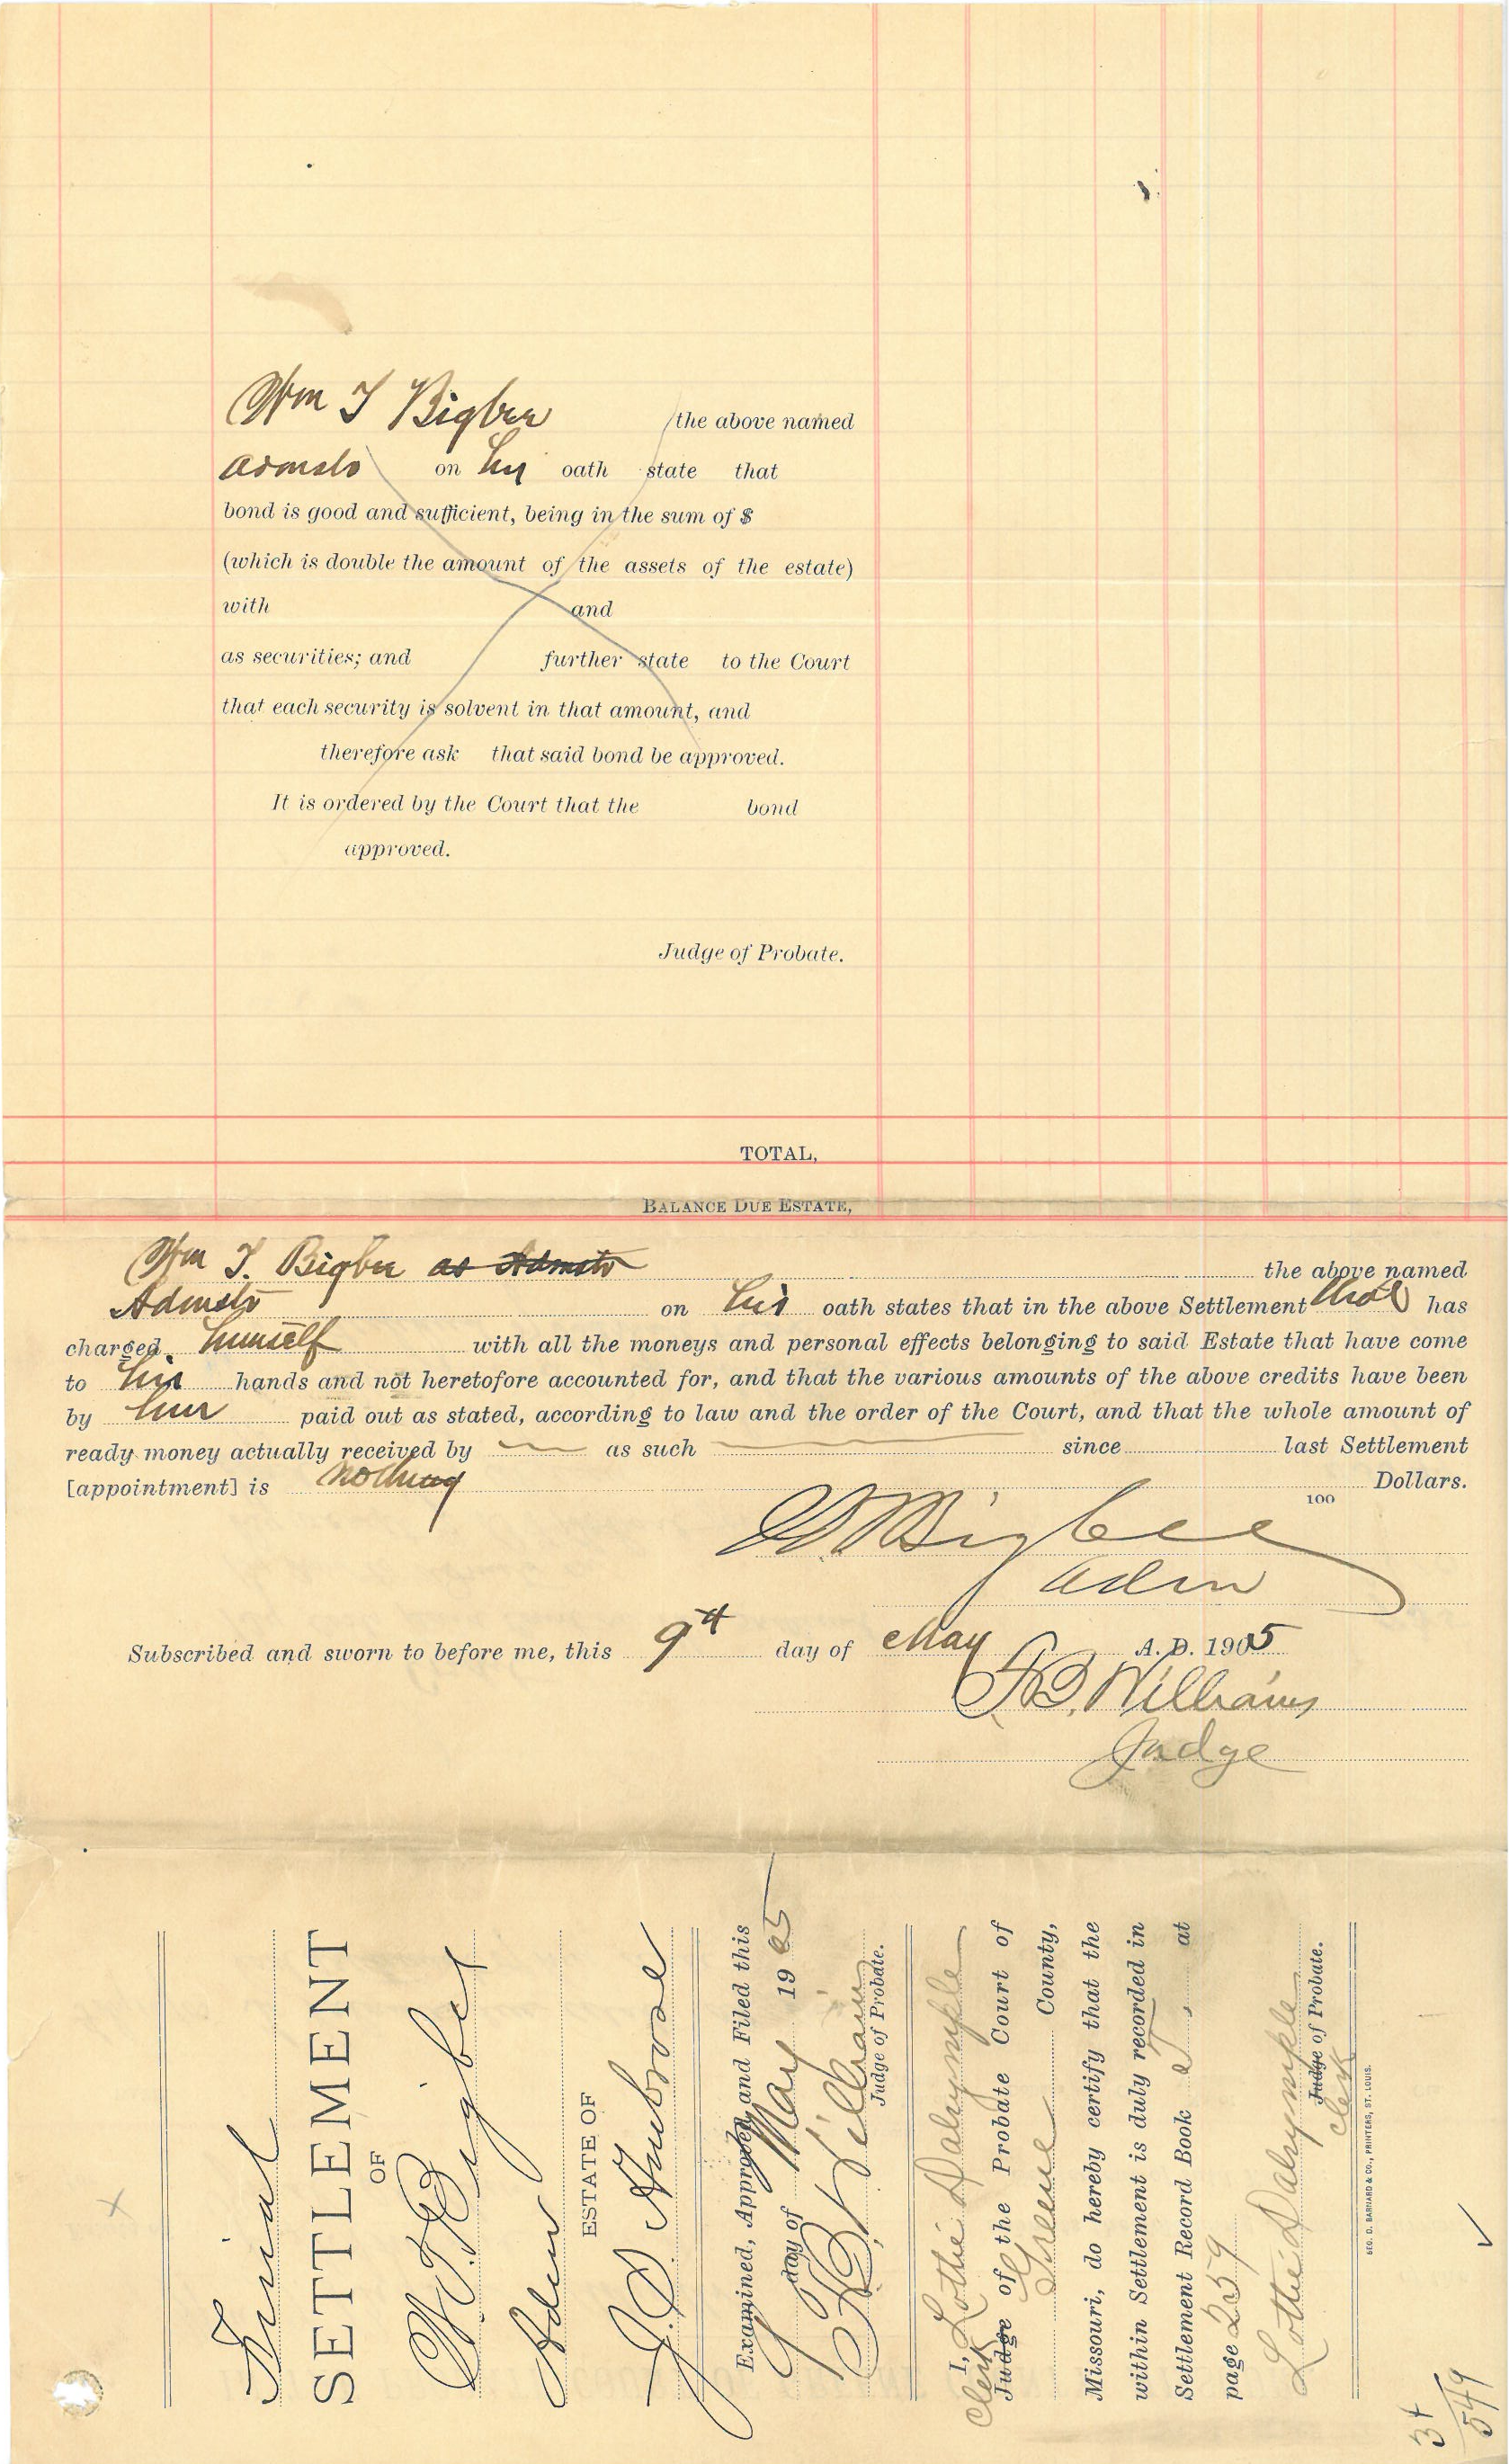 Wm T Bigbee the above named
Admstr on his oath state that
bond is good and sufficient, being in the sum of $
(which is double the amount of the assets of the estate)
with and
as securities; and further state to the Court
that each security is solvent in that amount, and
therefore ask that said bond be approved.
It is ordered by the Court that the bond
approved.
Judge of Probate.
TOTAL,
BALANCE DUE ESTATE,
Wm T. Bigbee as Admstr the above named
Admstr on his oath states that in the above Settlement that he has
charged himself with all the moneys and personal effects belonging to said Estate that have come
to his hands and not heretofore accounted for, and that the various amounts of the above credits have been
by him paid out as stated, according to law and the order of the Court, and that the whole amount of
ready money actually received by as such since last Settlement
[appointment] is nothing Dollars.
100
W T Bigbee
Adm
Subscribed and sworn to before me, this 9th day of May A. D. 1905
Williams
Judge
Final
SETTLEMENT
OF
W. T. Bigbee
Adm
ESTATE OF
J. S. Ambrose
Examined, Approved and Filed this
9 day of May 1905
Williams
Judge of Probate.
I, Lottie Dalrymple
Clerk
Judge of the Probate Court of
Greene County,
Missouri, do hereby certify that the
within Settlement is duly recorded in
Settlement Record Book , at
page 259
Lottie Dalrymple
Judge of Probate.
Clerk
GEO. D. BARNARD & CO., PRINTERS, ST. LOUIS.
34
549